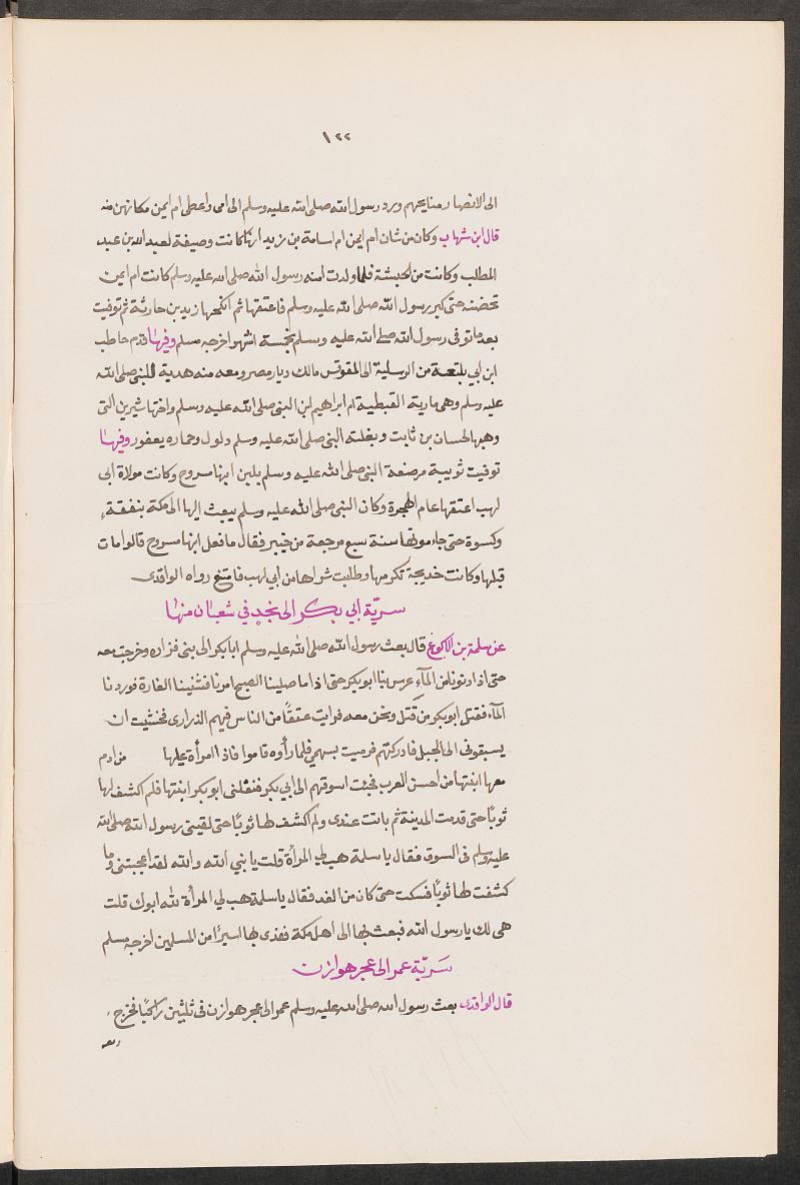 ١٢٢
الى الانصار منايحهم ورد رسول الله صلى الله عليه وسلم الى امى واعطى ام ايمن مكانهن منه
قال ابن شهاب وكان من شان ام ايمن ام اسامة بن زيد انها كانت وصيفة لعبد الله بن عبد
المطلب وكانت من الحبشة فلما ولدت امنه رسول الله صلى الله عليه وسلم كانت ام ايمن
تحضنه حتى كبر رسول الله صلى الله عليه وسلم فاعتقها ثم انكحها زيد بن حارثة ثم توفيت
بعد ما توفى رسول الله صلى الله عليه وسلم بخمسة اشهر اخرجه مسلم وفيها قدم حاطب
ابن ابي بلتعة من الرسلية الى المقوقس مالك ديار مصر ومعه منه هدية للنبى صلى الله
عليه وسلم وهى مارية القبطية ام ابراهيم ابن النبى صلى الله عليه وسلم واختها شيرين التى
وهبها لحسان بن ثابت وبغلته النبى صلى الله عليه وسلم دلول وحماره يعفور وفيها
توفيت ثويبة مرضعة النبى صلى الله عليه وسلم بلبن ابنها مسروح وكانت مولاة ابى
لهب اعتقها عام الهجرة وكان النبى صلى الله عليه وسلم يبعث اليها الى مكة بنفقة
وكسوة حتى جاء موتها سنة سبع مرجعة من خيبر فقال ما فعل ابنها مسروح قالوا مات
قبلها وكانت خديجة تكرمها وطلبت شراها من ابى لهب فامتنع رواه الواقدى
سرية ابي بكر الى نجد في شعبان منها
عن سلمة بن الاكوع قال بعث رسول الله صلى الله عليه وسلم ابا بكر الى بنى فزاره وخرجت معه
حتى اذا دنونا من المآء عرس بنا ابو بكر حتى اذا ما صلينا الصبح امرنا فشنينا الغارة فوردنا
المآء فقتل ابو بكر من قتل ونحن معه فرايت عنقًا من الناس فيهم الذرارى فخشيت ان
يسبقونى الى الجبل فادركتهم فرميت بسهمي فلما رأوه قاموا فاذا امرأة عليها من ادم
معها ابنتها من احسن العرب فجئت اسوقهم الى ابي بكر فنفلنى ابو بكر ابنتها فلم اكشف لها
ثوبًا حتى قدمت المدينة ثم باتت عندى ولم اكشف لها ثوبًا حتى لقينى رسول الله صلى الله
عليه وسلم فى السوق فقال يا سلمة هب لي المرأة قلت يا نبي الله والله لقد اعجبتنى وما
كشفت لها ثوبًا فسكت حتى كان من الغد فقال يا سلمة هب لي المرأة لله ابوك قلت
هى لك يا رسول الله فبعث بها الى اهل مكة ففدى بها اسيرًا من المسلمين اخرجه مسلم
سَريّة عمر الى عجز هوازن
قال الواقدى بعث رسول الله صلى الله عليه وسلم عمر الى عجز هوازن فى ثلثين راكبًا فخرج
معه